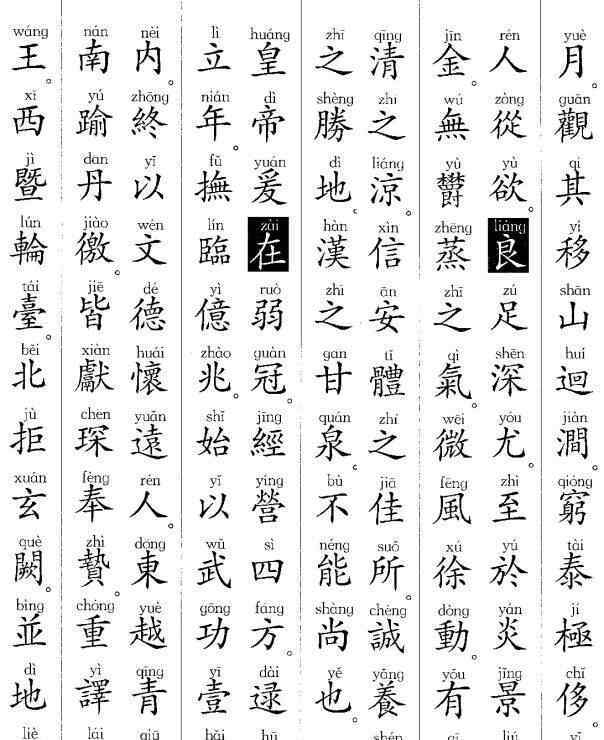 yuè guān qí yí shān huí jiàn qióng tài jí chǐ
月。觀其移山迴澗窮泰極侈
rén zòng yù liáng zú shēn yóu zhì yú yán jǐng
人從欲良足深尤至於炎景
jīn wú yù zhēng zhī qì wēi fēng xú dòng yǒu
金。無鬱蒸之氣。微風徐動有
qīng zhī liáng xìn ān tǐ zhī jiā suǒ chéng yǎng
清之涼信安體之佳所。誠養
zhī shèng dì hàn zhī gān quán bù néng shàng yě
之勝地。漢之甘泉。不能尚也。
huáng dì yuán zài ruò guàn jīng yíng sì fāng dài
皇帝爰在弱冠經營四方。逮
lì nián fǔ lín yì zhào shǐ yǐ wǔ gōng yī
立年。撫臨億兆。始以武功壹
nèi zhōng yǐ wén dé huái yuǎn rén dōng yuè qīng
内。終以文德懷遠人。東越青
nán yú dān jiào jiē xiàn chēn fèng zhì chóng yì
南踰丹徼。皆獻琛奉贄。重譯
wáng xī jì lún tái běi jù xuán què bìng dì
王。西暨輪臺。北拒玄闕。並地